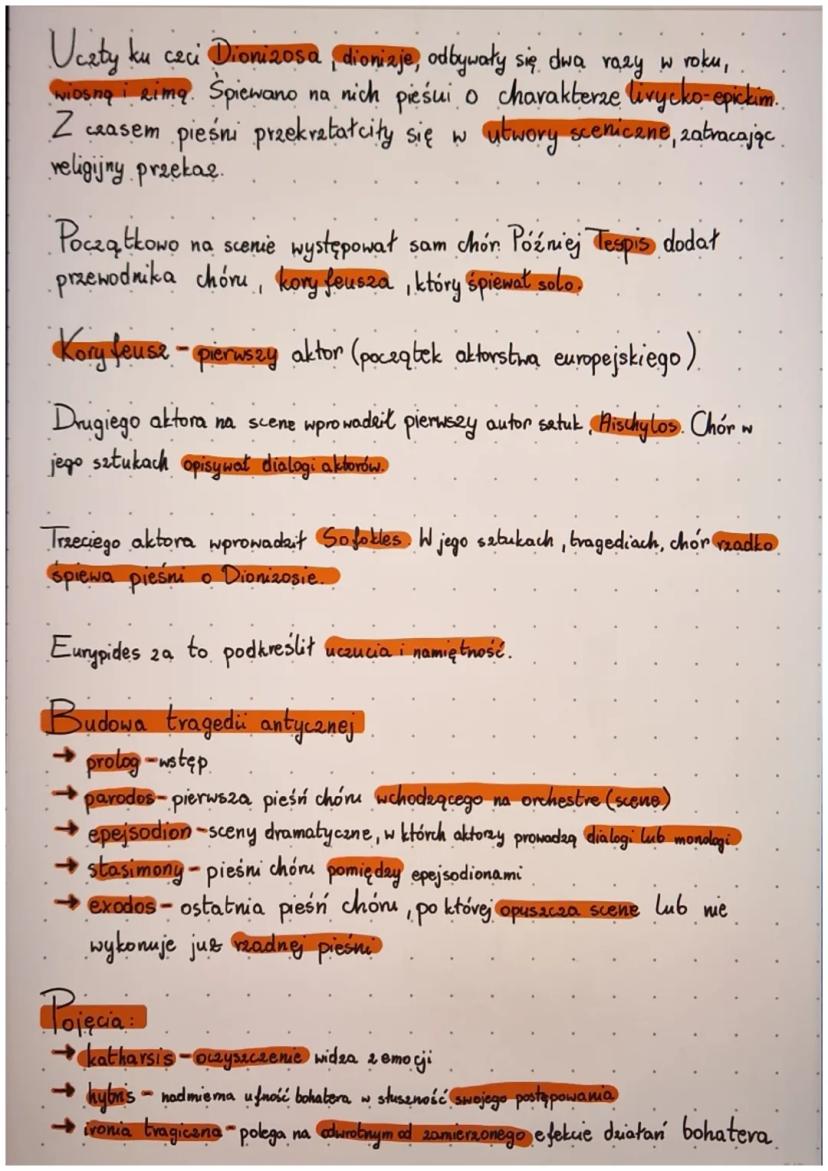 Uczty ku czci Dionizosa, dionizje, odbywały się dwa razy w roku,
wiosną i zimą. Śpiewano na nich pieśni o charakterze liryczko-epickim.
Z czasem pieśni przekształciły się w utwory sceniczne, zatracając
religijny przekaz.
Początkowo na scenie występował sam chór. Później Tespis dodał
przewodnika chóru, koryfeusza, który śpiewał solo.
Koryfeusz - pierwszy aktor (początek aktorstwa europejskiego)
Drugiego aktora na scene wprowadził pierwszy autor sztuk, Aischylos. Chór w
jego sztukach opisywał dialogi aktorów.
Trzeciego aktora wprowadził Sofokles. W jego sztukach, tragediach, chór rzadko
śpiewa pieśni o Dionizosie.
Eurypides za to podkreślił uczucia i namiętność.
Budowa tragedii antycznej
→ prolog - wstęp
→ parodos - pierwsza pieśń chóru wchodzącego na orchestre (scene)
→ epejsodion - sceny dramatyczne, w którch aktorzy prowadzą dialogi lub monologi
→ stasimony - pieśni chóru pomiędzy epejsodionami
→ exodos - ostatnia pieśń chóru, po której opuszcza scene lub nie
wykonuje już rzadnej pieśni
Pojęcia:
→ katharsis - oczyszczenie widza z emocji
→ hybris - nadmierna ufność bohatera w słuszność swojego postępowania
→ ironia tragiczna - polega na odwrotnym od zamierzonego efekcie działań bohatera